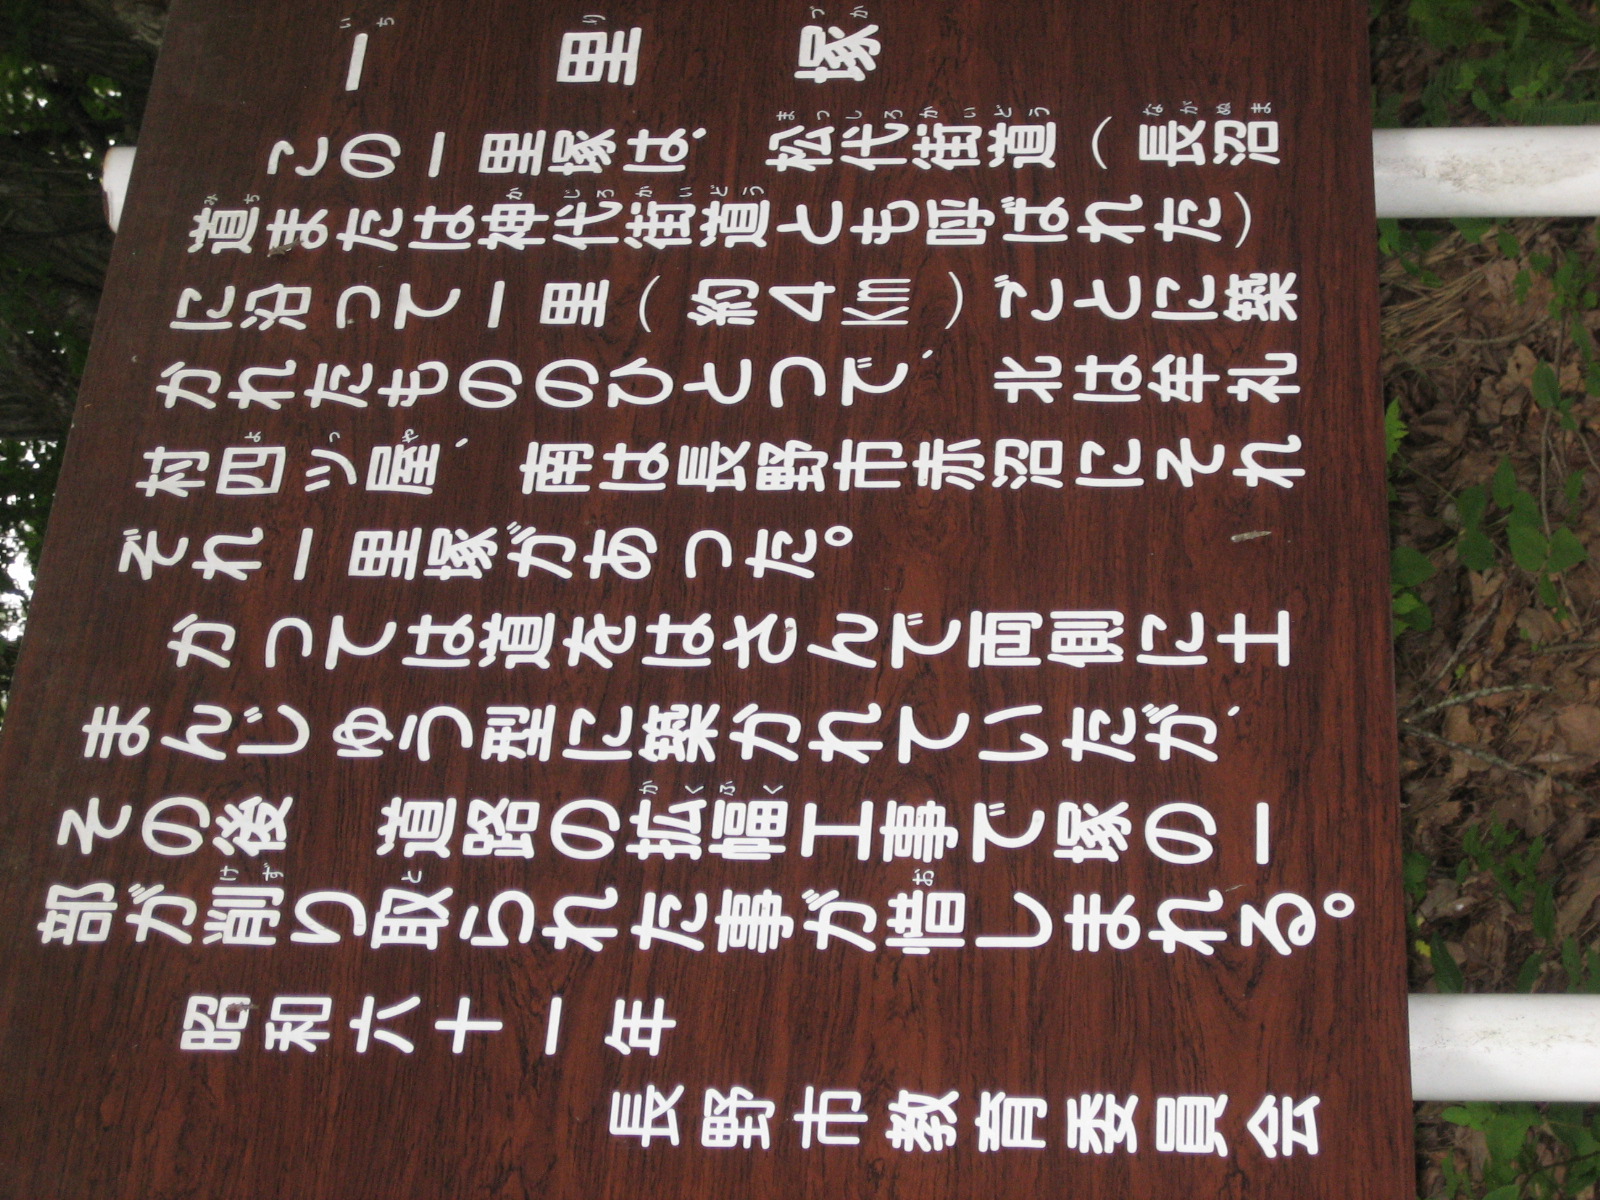 一里塚
この一里塚は、松代街道（長沼
道または神代街道とも呼ばれた）
に沿って一里（約4km）ごとに築
かれたもののひとつで、北は牟礼
村四ツ屋、南は長野市赤沼にそれ
ぞれ一里塚があった。
かつては道をはさんで両側に土
まんじゅう型に築かれていたが、
その後 道路の拡幅工事で塚の一
部が削り取られた事が惜しまれる。
昭和六十一年
長野市教育委員会